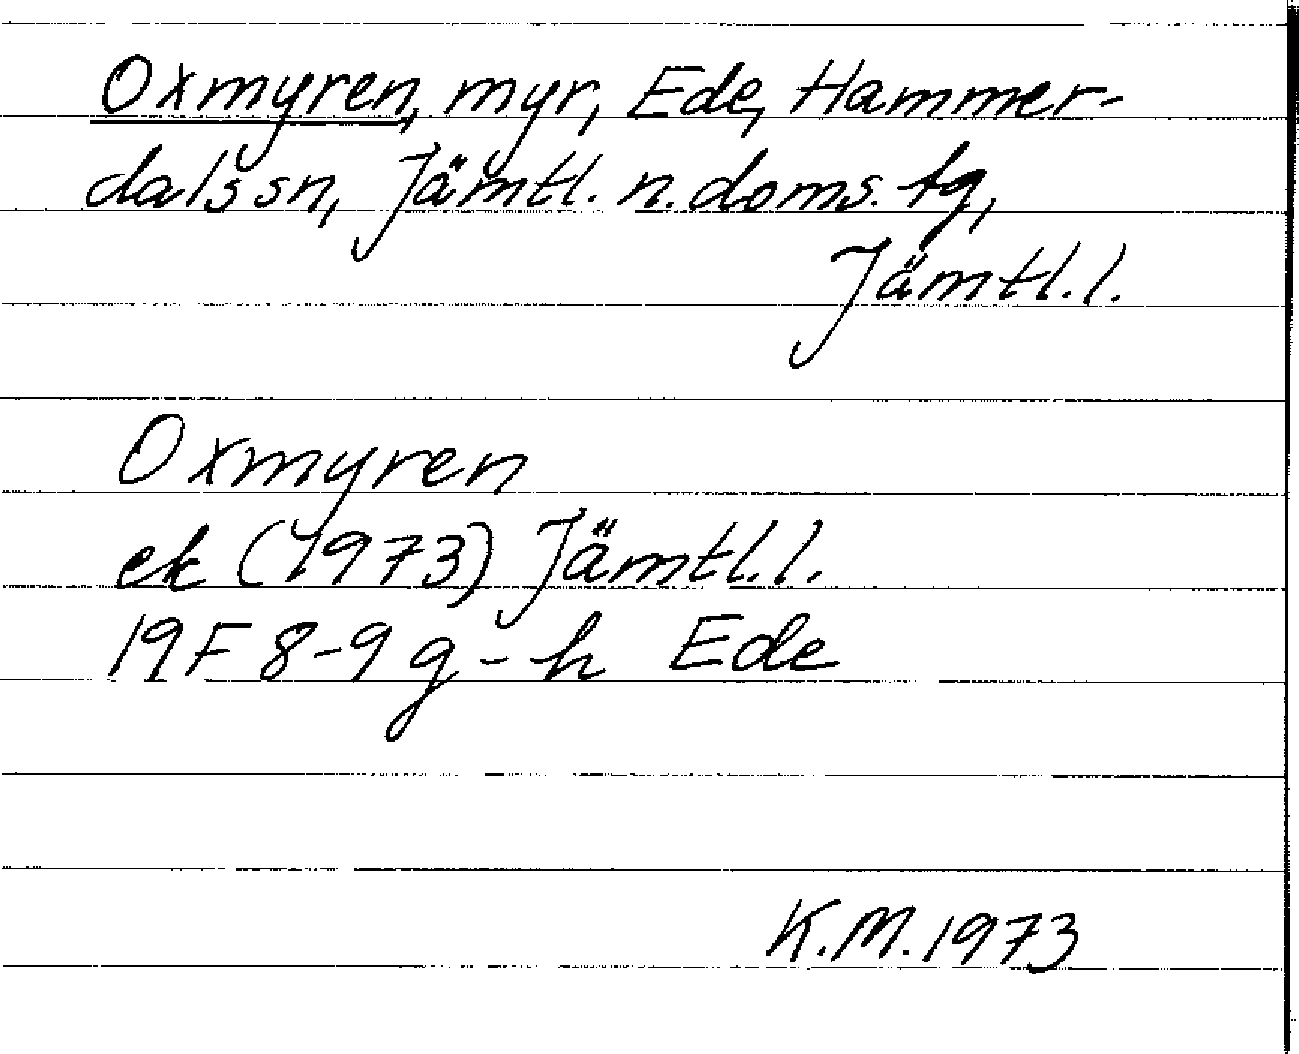 Oxmyren, myr, Ede, Hammer-
dals sn, Jämtl. n. doms. tg,
Jämtl. l.
Oxmyren
ek (1973) Jämtl. l.
19F 8-9 g-h Ede
K.M. 1973